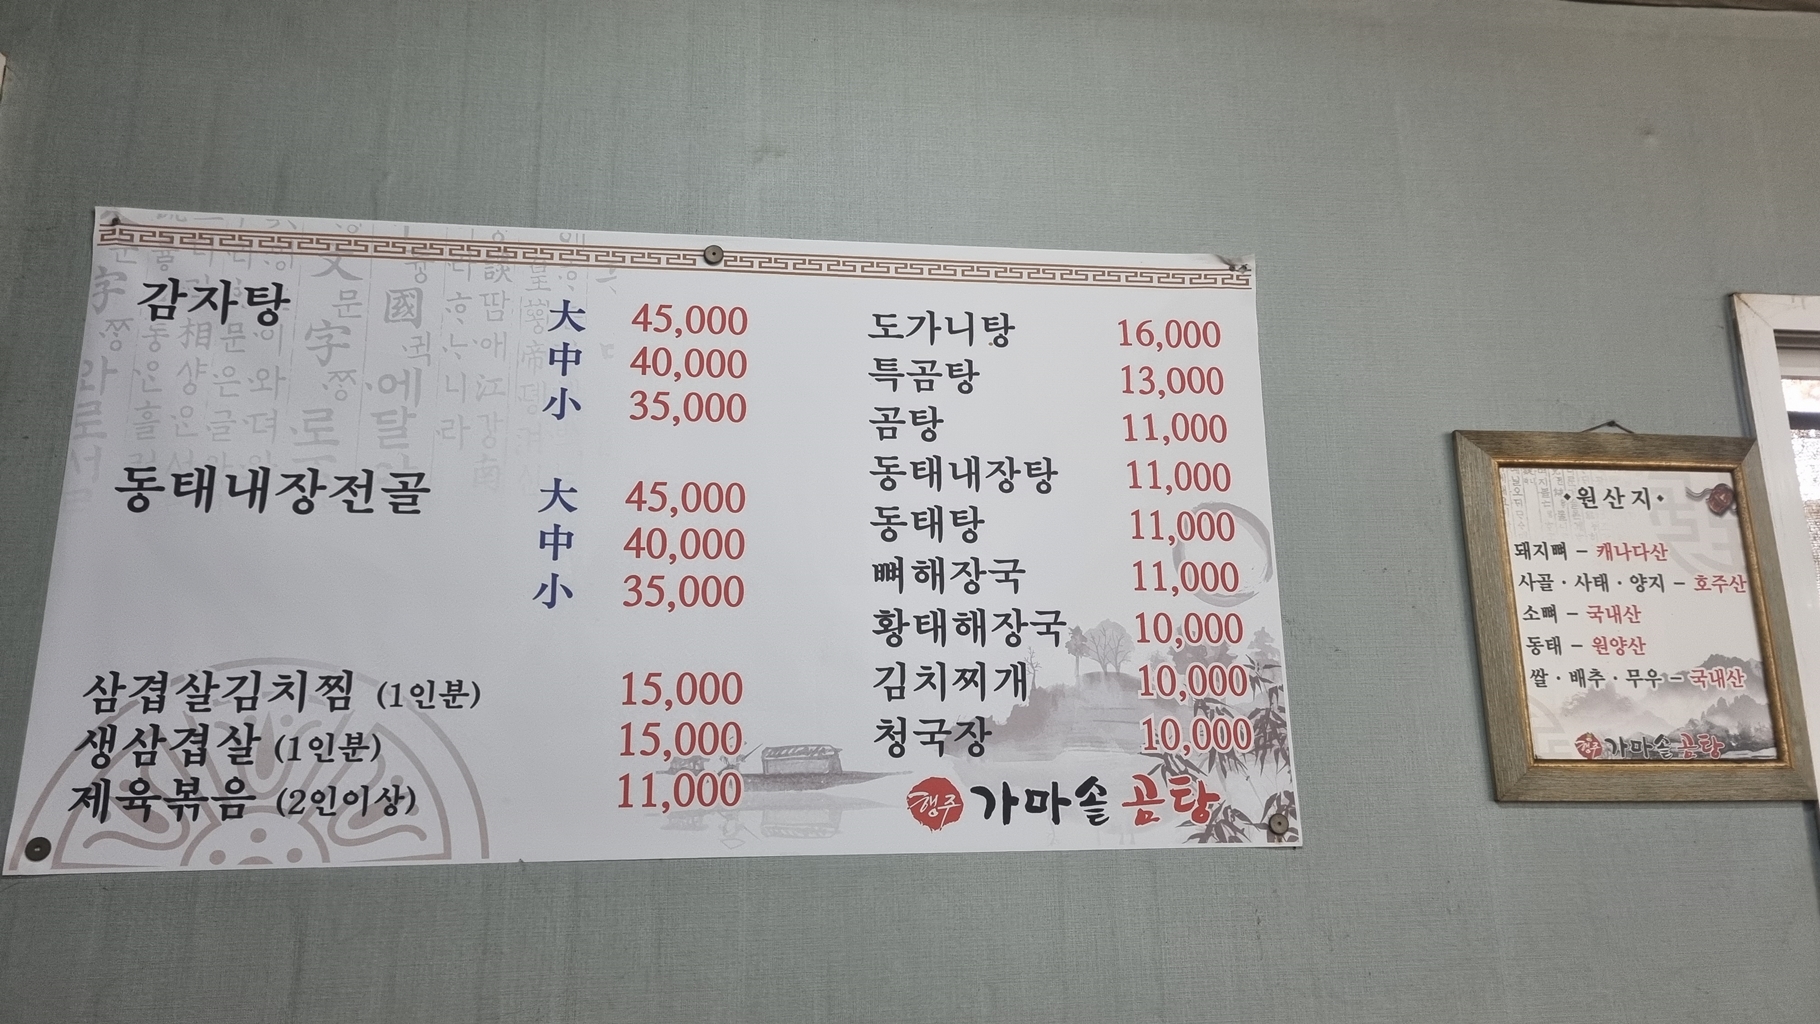 감자탕 大 45,000
中 40,000
小 35,000
동태내장전골 大 45,000
中 40,000
小 35,000
삼겹살김치찜 (1인분) 15,000
생삼겹살 (1인분) 15,000
제육볶음 (2인이상) 11,000
도가니탕 16,000
특곰탕 13,000
곰탕 11,000
동태내장탕 11,000
동태탕 11,000
뼈해장국 11,000
황태해장국 10,000
김치찌개 10,000
청국장 10,000
행주 가마솥 곰탕
·원산지·
돼지뼈 - 캐나다산
사골·사태·양지 - 호주산
소뼈 - 국내산
동태 - 원양산
쌀·배추·무우 - 국내산
행주 가마솥 곰탕